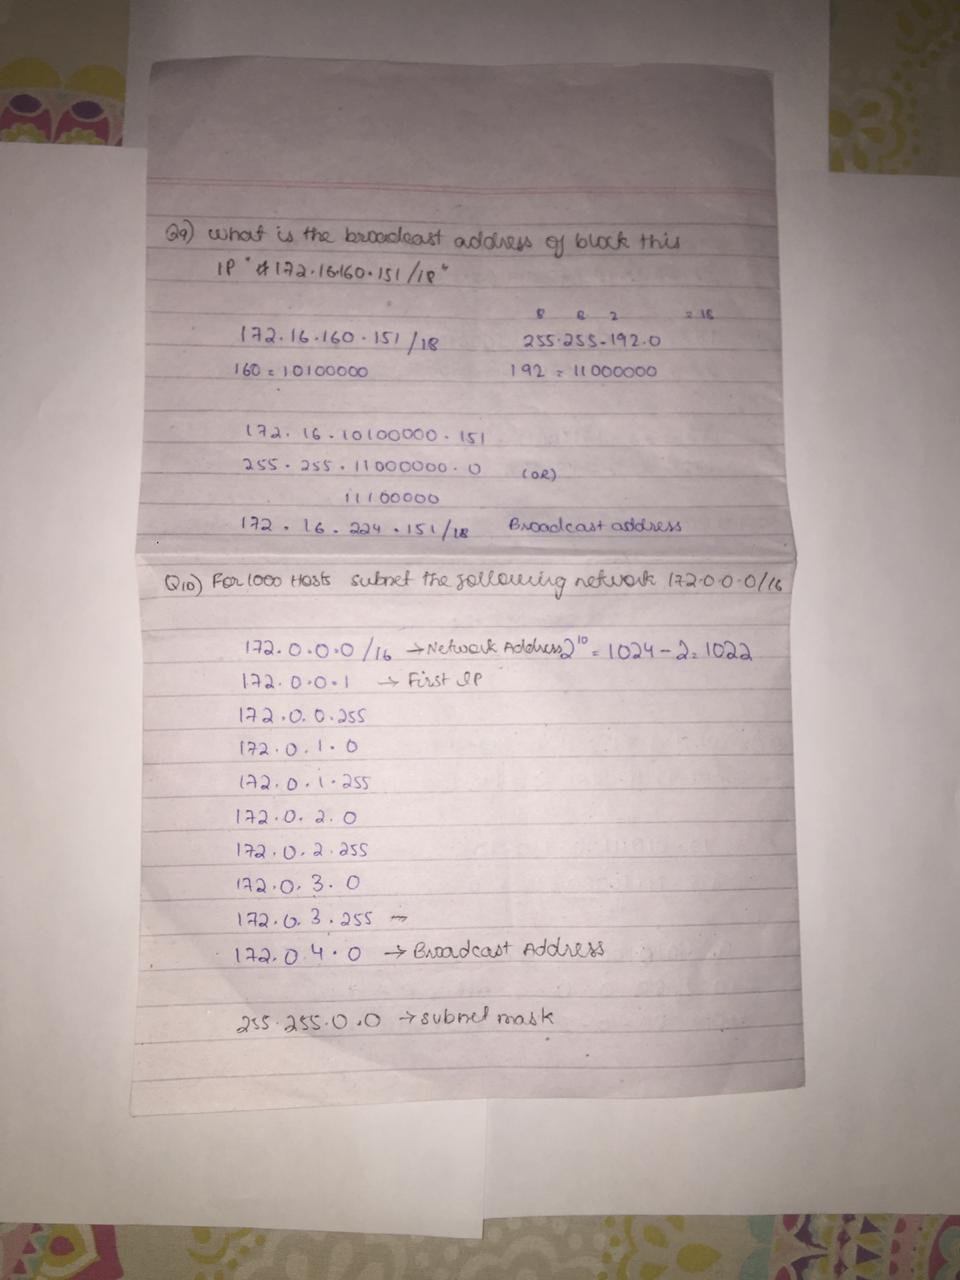 Q9) what is the broadcast address of block this
IP " 172.16.160.151/18"
8 8 2 = 18
172.16.160.151/18 255.255.192.0
160 = 10100000 192 = 11000000
172.16.10100000.151
255.255.11000000.0 (OR)
11100000
172.16.224.151/18 Broadcast address
Q10) For 1000 Hosts subnet the following network 172.0.0.0/16
172.0.0.0/16 → Network Address 2^10 = 1024 - 2 = 1022
172.0.0.1 → First IP
172.0.0.255
172.0.1.0
172.0.1.255
172.0.2.0
172.0.2.255
172.0.3.0
172.0.3.255
172.0.4.0 → Broadcast Address
255.255.0.0 → subnet mask